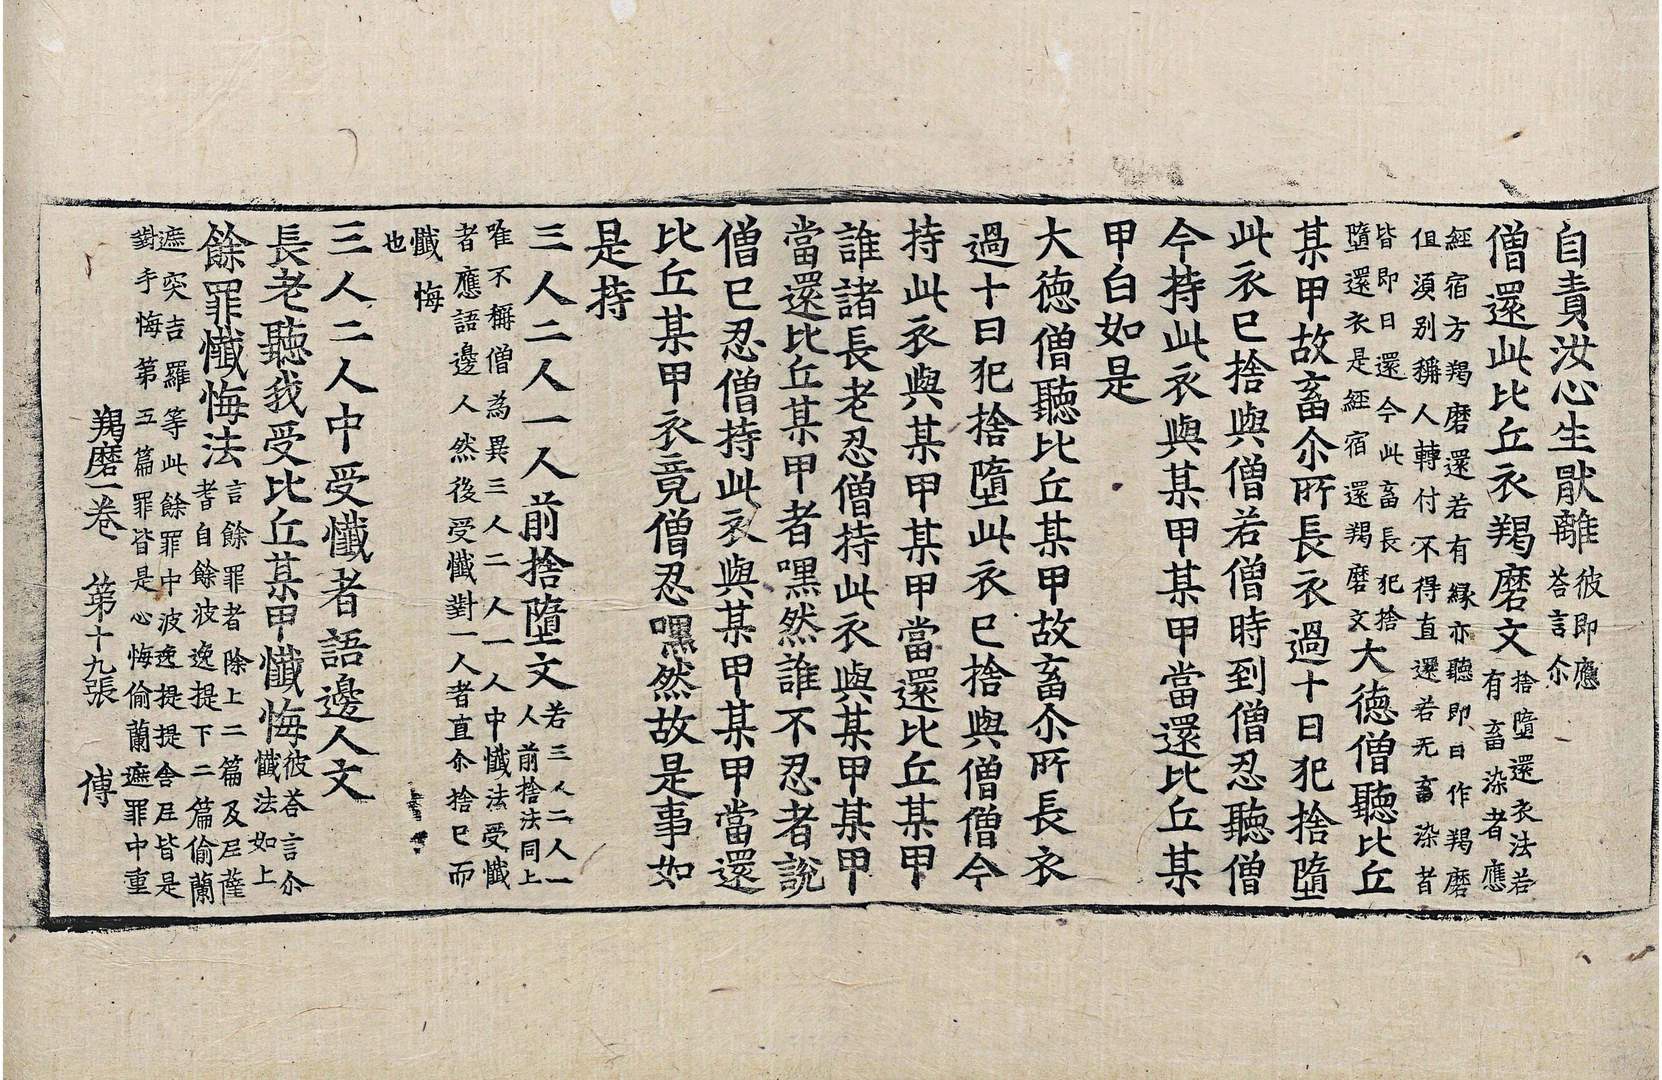 自責汝心生猒離彼即應
荅言尒
僧還此比丘衣羯磨文捨墮還衣法若
有畜染者應
經宿方羯磨還若有縁亦聽即日作羯磨
但湏别稱人轉付不得直還若无畜染者
皆即日還今此畜長犯捨
墮還衣是經宿還羯磨文大德僧聽比丘
某甲故畜尒所長衣過十日犯捨墮
此衣已捨與僧若僧時到僧忍聽僧
今持此衣與某甲某甲當還比丘某
甲白如是
大德僧聽比丘某甲故畜尒所長衣
過十日犯捨墮此衣已捨與僧僧今
持此衣與某甲某甲當還比丘某甲
誰諸長老忍僧持此衣與某甲某甲
當還比丘某甲者嘿然誰不忍者說
僧已忍僧持此衣與某甲某甲當還
比丘某甲衣竟僧忍嘿然故是事如
是持
三人二人一人前捨墮文若三人二人一
人前捨法同上
唯不稱僧為異三人二人一人中懺法受懺
者應語邊人然後受懺對一人者直尒捨已而
懺悔
也
三人二人中受懺者語邊人文
長老聽我受比丘某甲懺悔彼荅言尒
懺法如上
餘罪懺悔法言餘罪者除上二篇及尼薩
耆自餘波逸提下二篇偷蘭
遮突吉羅等此餘罪中波逸提提舍尼皆是
對手悔第五篇罪皆是心悔偷蘭遮罪中重
羯磨一卷 第十九張 傅